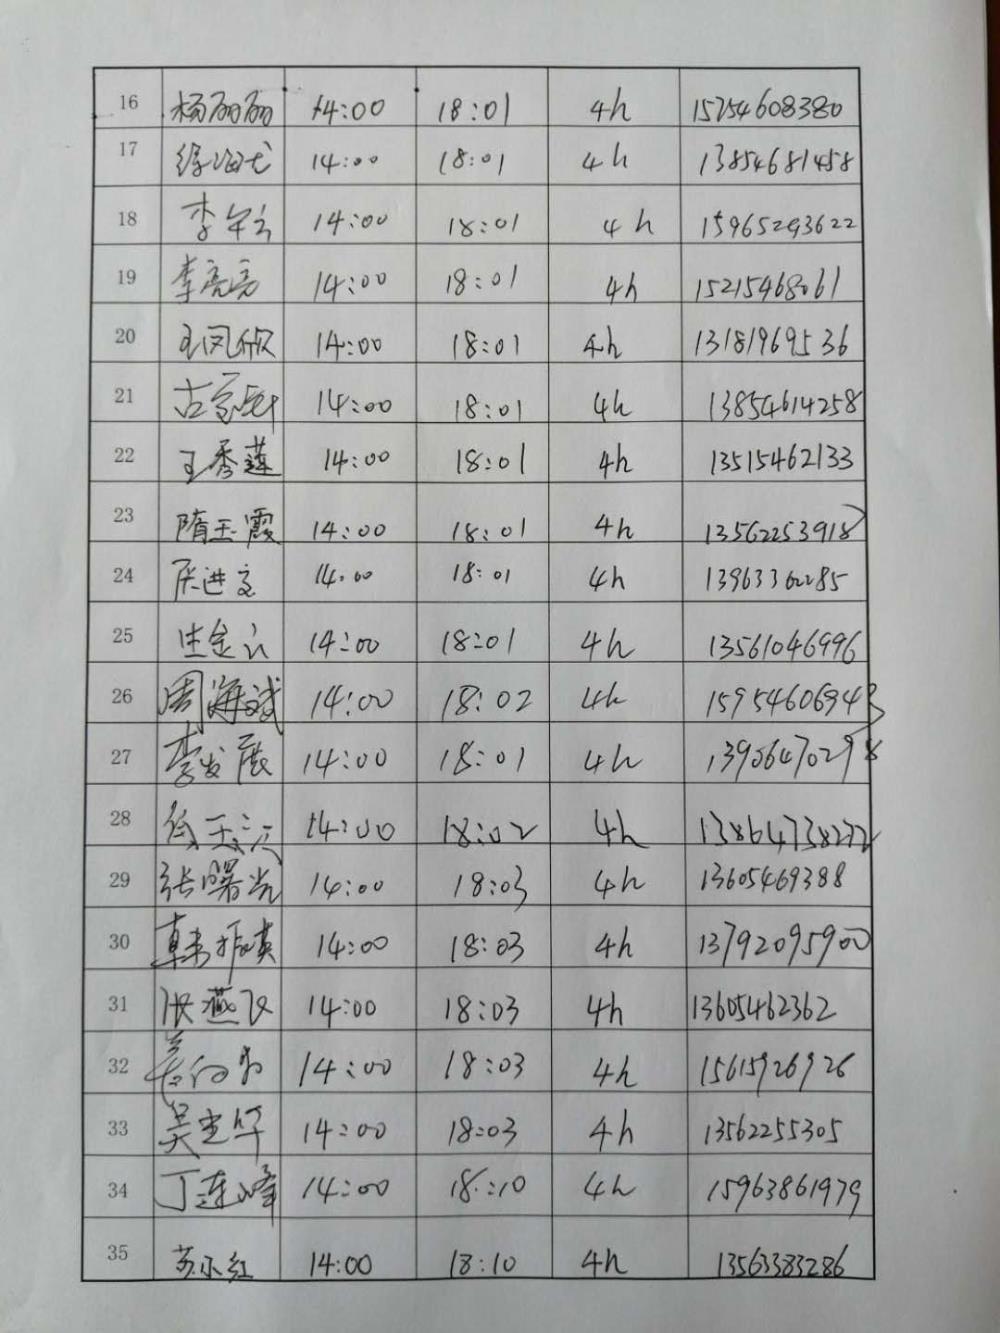 16 杨丽丽 14:00 18:01 4h 15254608380
17 14:00 18:01 4h 13854681458
18 李 14:00 18:01 4h 15965293622
19 李亮亮 14:00 18:01 4h 15215468061
20 王凤欣 14:00 18:01 4h 13181969536
21 古 14:00 18:01 4h 13854614258
22 王秀莲 14:00 18:01 4h 13515462133
23 隋玉霞 14:00 18:01 4h 13562253918
24 进 14:00 18:01 4h 13963362285
25 14:00 18:01 4h 13561046996
26 周海斌 14:00 18:02 4h 15954606943
27 李发展 14:00 18:01 4h 13906470298
28 14:00 18:02 4h 13864738272
29 张曙光 14:00 18:03 4h 13605469388
30 韩振英 14:00 18:03 4h 13792095900
31 张燕飞 14:00 18:03 4h 13605462362
32 14:00 18:03 4h 15615926926
33 吴金华 14:00 18:03 4h 13562255305
34 丁连峰 14:00 18:10 4h 15963861979
35 苏小红 14:00 18:10 4h 13563383286